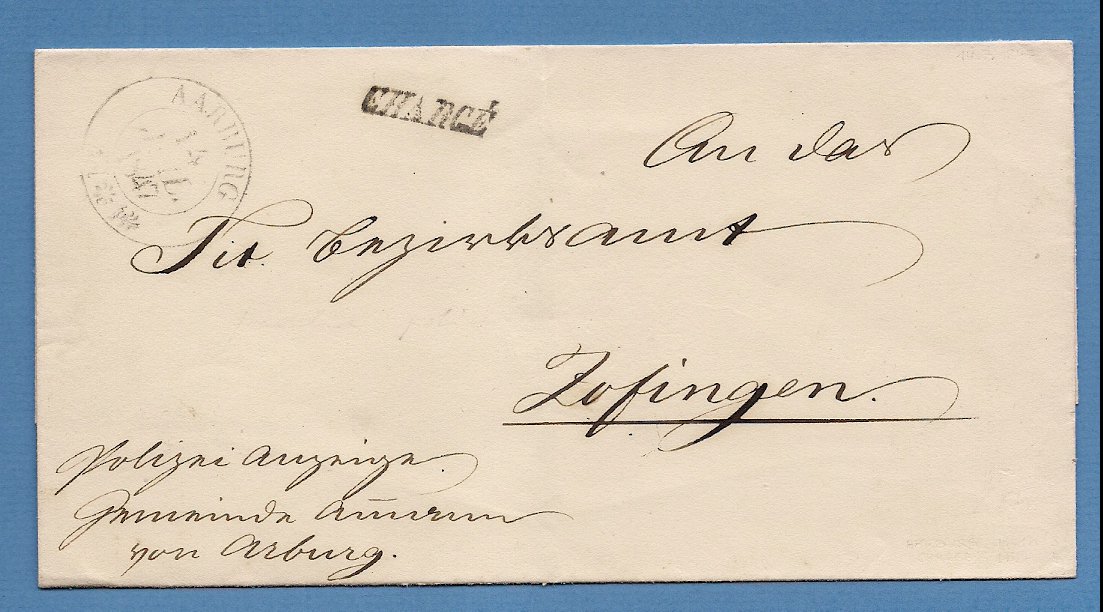 AARBURG
CHARGÉ
An das
Tit. Bezirksamt
Zofingen.
Polizei Anzeige.
Gemeinde
von Arburg.